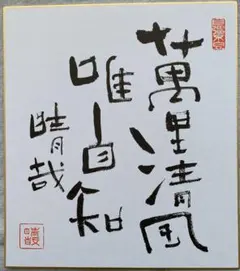 萬里清風
唯自知
晴哉